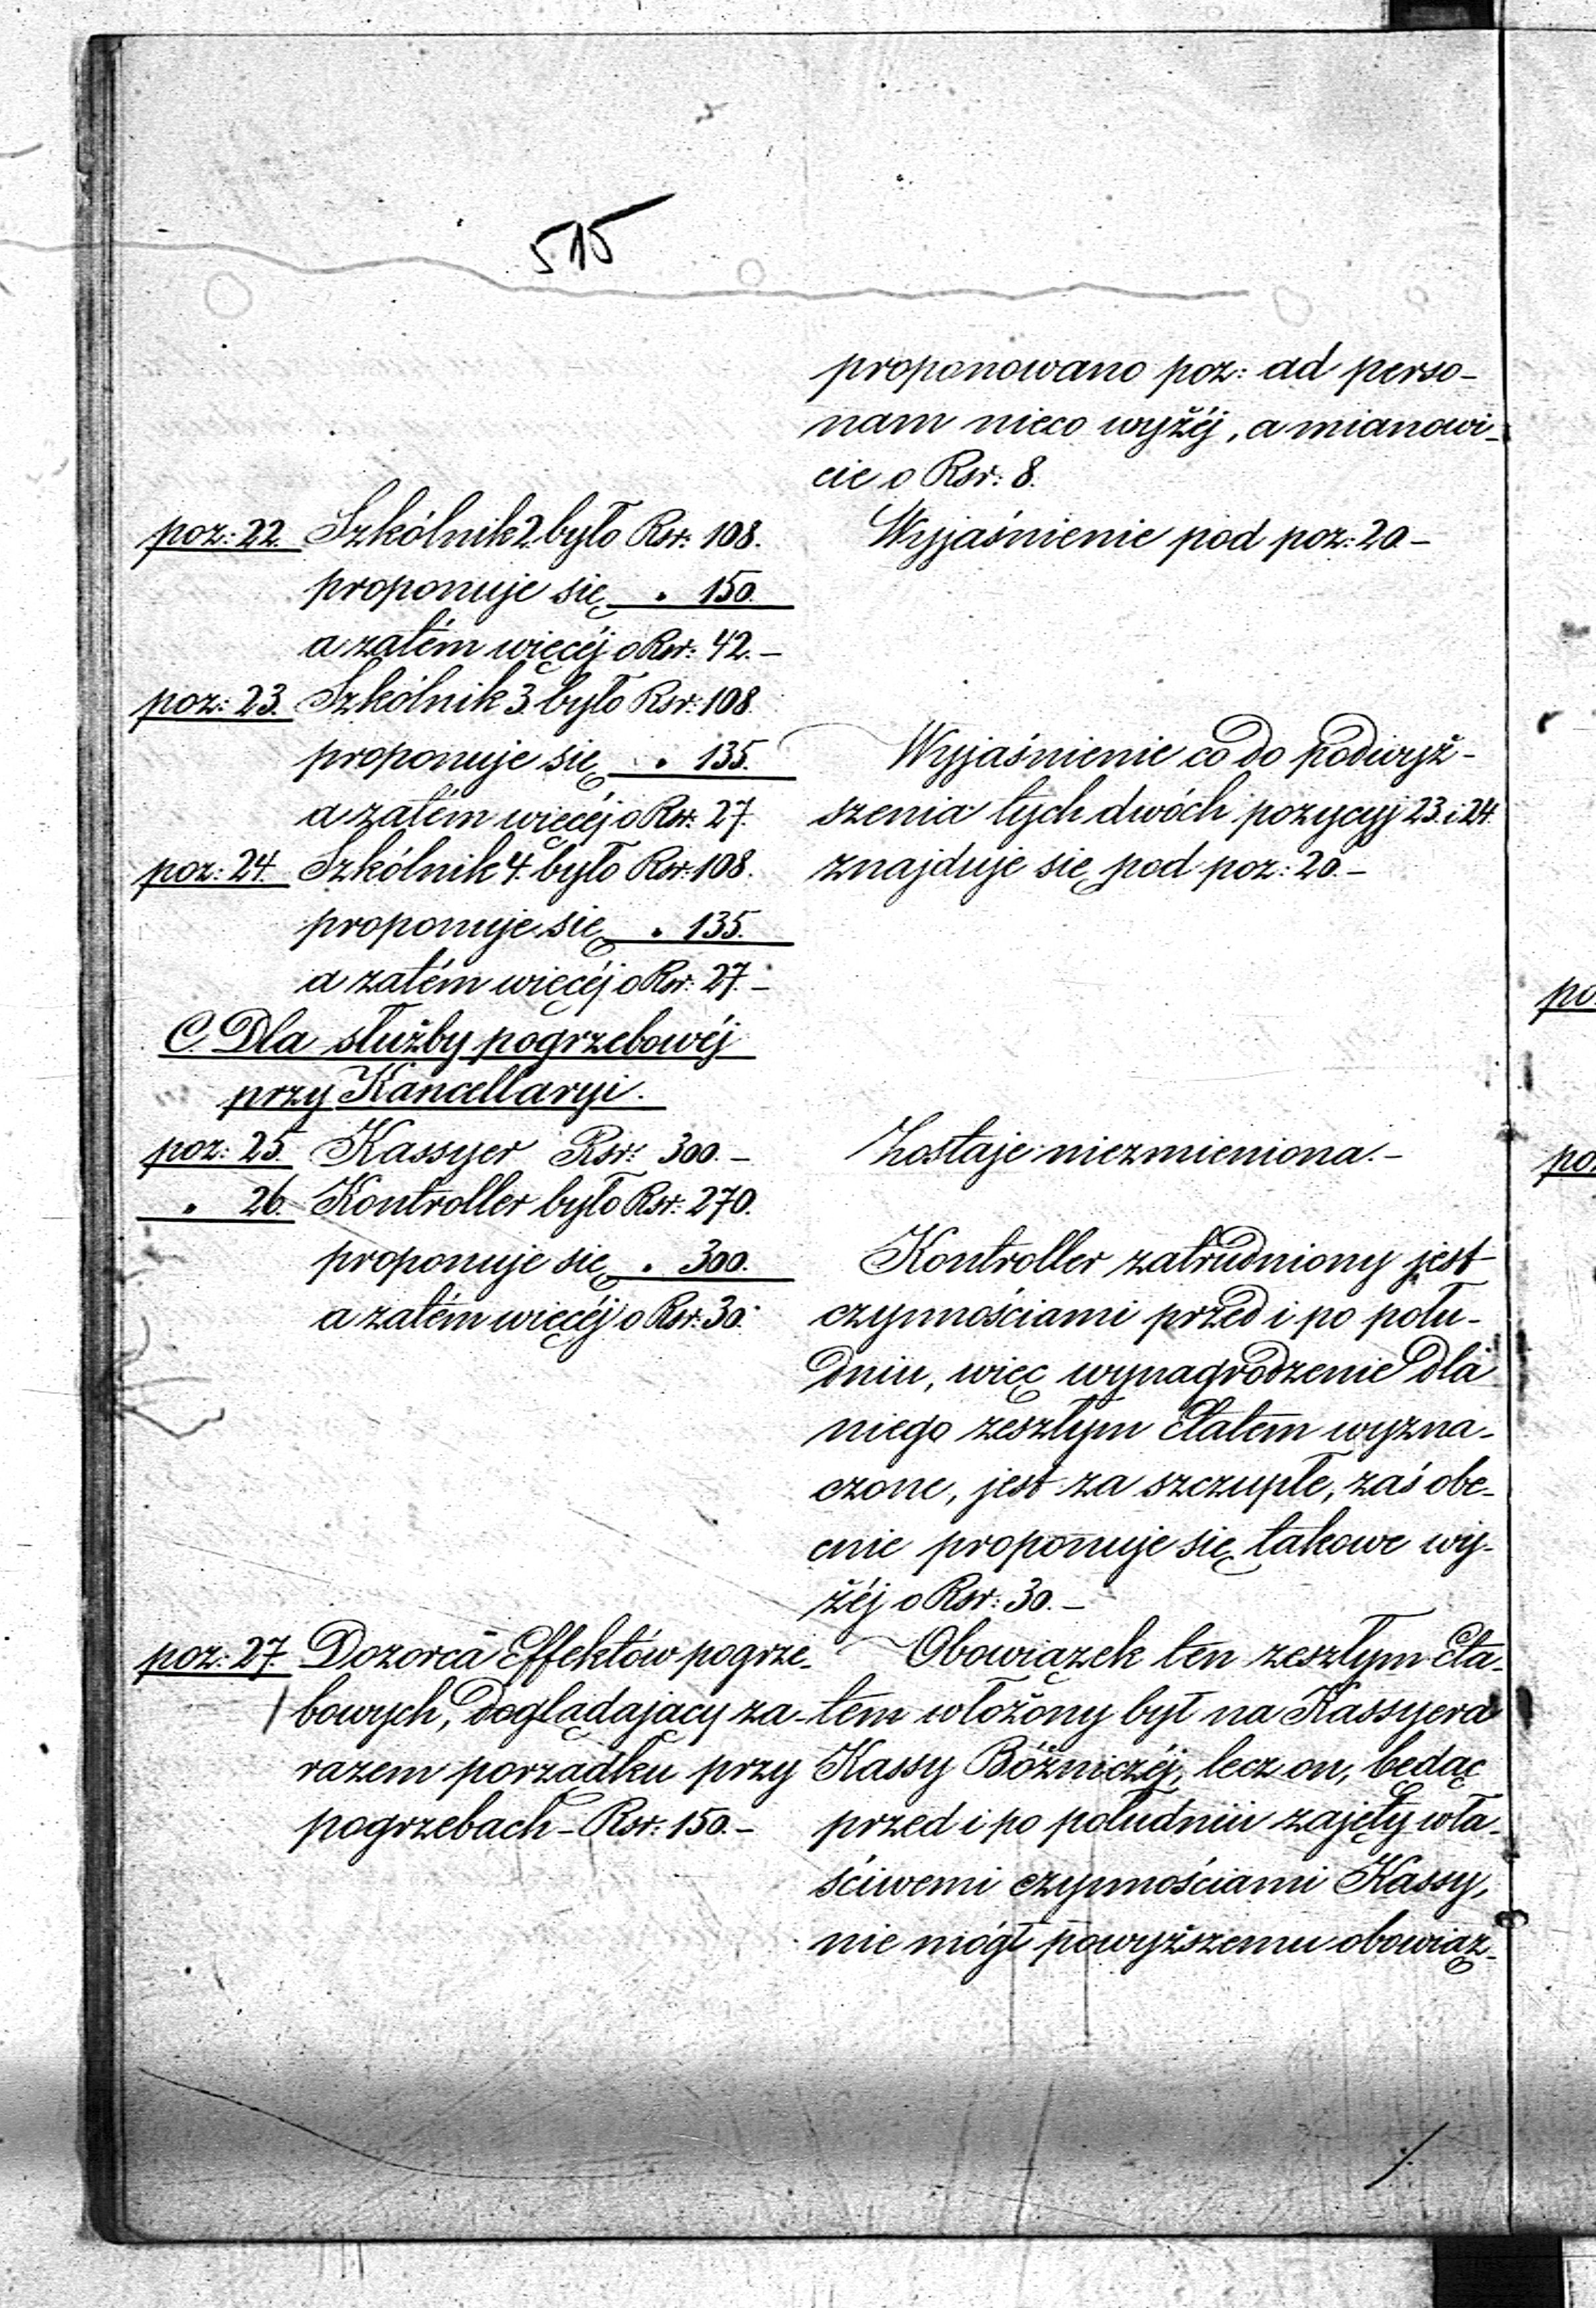 515
proponowano poz: ad perso-
nam nieco wyżéj, a mianowi-
cie o Rsr: 8.
poz: 22. Szkólnik 2. było Rsr: 108.
Wyjaśnienie pod poz: 20.-
proponuje się " 150.
a zatém więcéj o Rsr: 42.-
poz: 23. Szkólnik 3. było Rsr: 108.
proponuje się " 135.
a zatém więcéj o Rsr: 27.
Wyjaśnienie co do podwyż-
szenia tych dwóch pozycyj 23. i 24.
znajduje się pod poz: 20.-
poz: 24. Szkólnik 4. było Rsr: 108.
proponuje się " 135.
a zatém więcéj o Rsr: 27.-
C. Dla służby pogrzebowéj
przy Kancellaryi.
poz: 25. Kassyer Rsr: 300.-
Zostaje niezmieniona.-
" 26. Kontroller było Rsr: 270.
proponuje się " 300.
a zatém więcéj o Rsr: 30.
Kontroller zatrudniony jest
czynnościami przed i po połu-
dniu, więc wynagrodzenie dla
niego zeszłym Etatem wyzna-
czone, jest za szczupłe, zaś obe-
cnie proponuje się takowe wy-
żéj o Rsr: 30.-
poz: 27. Dozorca Effektów pogrze-
bowych, doglądający za-
razem porządku przy
pogrzebach - Rsr: 150.-
Obowiązek ten zeszłym Eta-
tem włożony był na Kassyera
Kassy Bóżniczéj, lecz on, będąc
przed i po południu zajęty wła-
ściwemi czynnościami Kassy,
nie mógł powyższemu obowiąz-